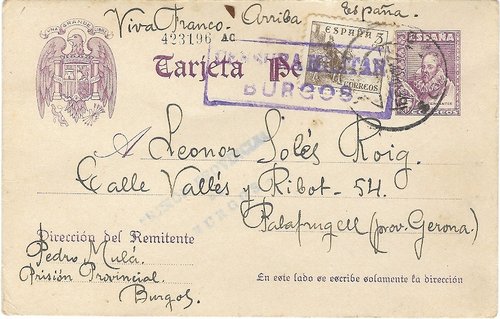 Viva Franco. Arriba España.
UNA GRANDE LIBRE
423196 AC
ESPAÑA 5
CORREOS
ESPAÑA
CORREOS
Tarjeta
MILITAR
BURGOS
A Leonor Solés Roig.
Calle Vallés y Ribot - 54.
Palafrugell (prov. Gerona.)
BURGOS
Dirección del Remitente
Pedro Mulá.
Prisión Provincial.
Burgos.
En este lado se escribe solamente la dirección